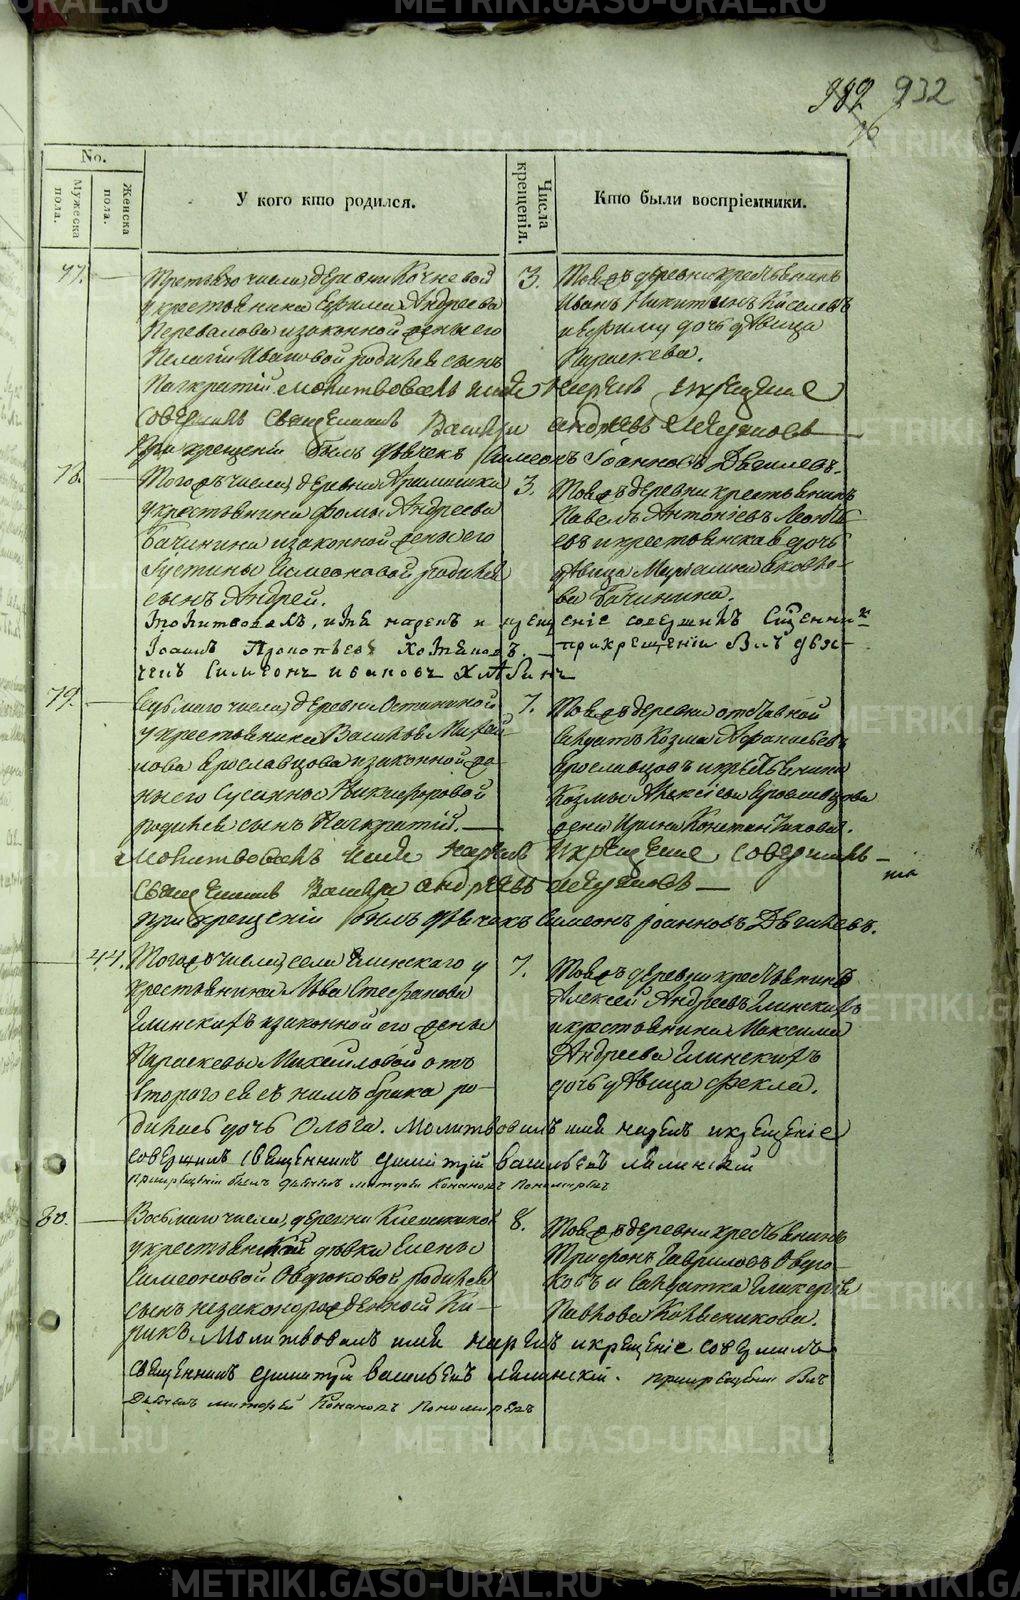 982 932
96
No.
Мужеска пола.
Женска пола.
У кого кто родился.
Числа крещенія.
Кто были воспріемники.
77.
Третьяго числа, деревни Кочневой
у крестьянина Ефрима Андреева
Перевалова и законной жены его
Пелагіи Ивановой родился сынъ
Панкратій
3.
Тояжъ деревни крестьянинъ
Иванъ Никитинъ Киселевъ
дочь дѣвица
Параскева.
молитвовалъ имя нарекъ и крещеніе
совершилъ священникъ Василій Андреевъ
При крещеніи былъ дьячекъ Симеонъ Іоанновъ Дягилевъ.
78.
Тогожъ числа, деревни Арамашки
у крестьянина Фомы Андреева
Бачинина и законной жены его
Іустины Симеоновой родился
сынъ Андрей.
3.
Тояжъ деревни крестьянинъ
Павелъ Антоніевъ
и крестьянская дочь
дѣвица
Бачинина.
Молитвовалъ, имя нарекъ и крещеніе совершилъ Священникъ
Іоаннъ Прокопьевъ при крещеніи былъ дьячекъ
Симеонъ Ивановъ Хлябинъ
79.
Седьмаго числа, деревни Останиной
у крестьянина Василья Михай-
лова Ерославцова и законной же-
ны его Сусанны Никифоровой
родился сынъ Панкратій.
7.
Тояжъ деревни отставной
солдатъ Козма Афанасьевъ
Ерославцовъ и крестьянина
Козмы Алексіева Ерославцова
жена Ирина Константинова.
Молитвовалъ имя нарекъ и крещеніе совершилъ
Священникъ Василій Андреевъ
При крещеніи былъ дьячекъ Симеонъ Іоанновъ Дягилевъ.
44.
Тогожъ числа, села Глинскаго у
крестьянина Льва Стефанова
Глинскихъ и законной его жены
Параскевы Михайловой отъ
втораго ея съ нимъ брака ро-
дилась дочь Ольга.
7.
Алексей Андреевъ Глинскихъ
и крестьянина Максима
Андреева Глинскихъ
дочь дѣвица Фекла.
Молитвовалъ имя нарекъ и крещеніе
совершилъ священникъ Димитрій Васильевъ
При крещеніи былъ дьячекъ Матфей Кононовъ Пономаревъ
80.
Восьмаго числа, деревни Клевакиной
у крестьянской дѣвки Елены
Симеоновой Овдюковой родился
сынъ незаконорожденной Ки-
рикъ.
8.
Тояжъ деревни крестьянинъ
Трифонъ Гавриловъ Овдю-
ковъ и солдатка Гликерія
Павлова Колесникова.
Молитвовалъ имя нарекъ и крещеніе совершилъ
священникъ Димитрій Васильевъ при крещеніи былъ
Дьячекъ Матфей Кононовъ Пономаревъ
METRIKI.GASO-URAL.RU